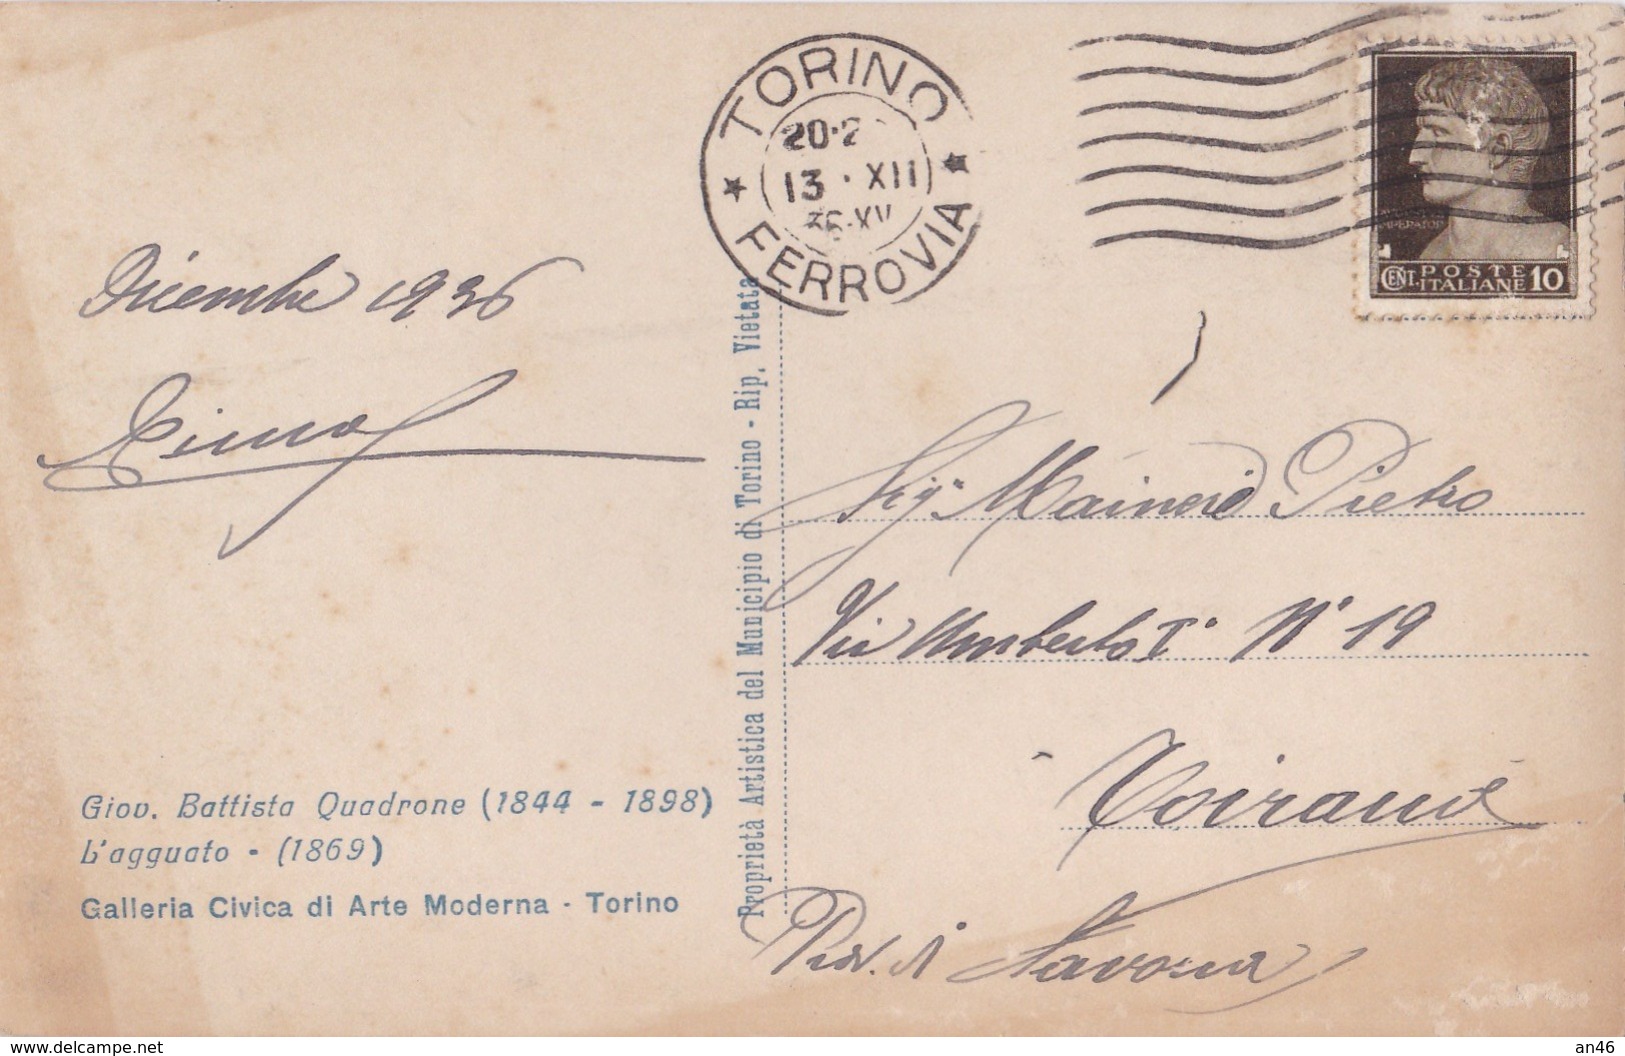 TORINO
20·2
13 · XII
36·XV
FERROVIA
IMPERATOR
CENT. POSTE ITALIANE 10
Dicembre 1936
Giov. Battista Quadrone (1844 - 1898)
L'agguato - (1869)
Galleria Civica di Arte Moderna - Torino
Proprietà Artistica del Municipio di Torino - Rip. Vietata
Sig. Mainero Pietro
Via Umberto I° N° 19
Toirano
Prov. di Savona
www.delcampe.net
an46